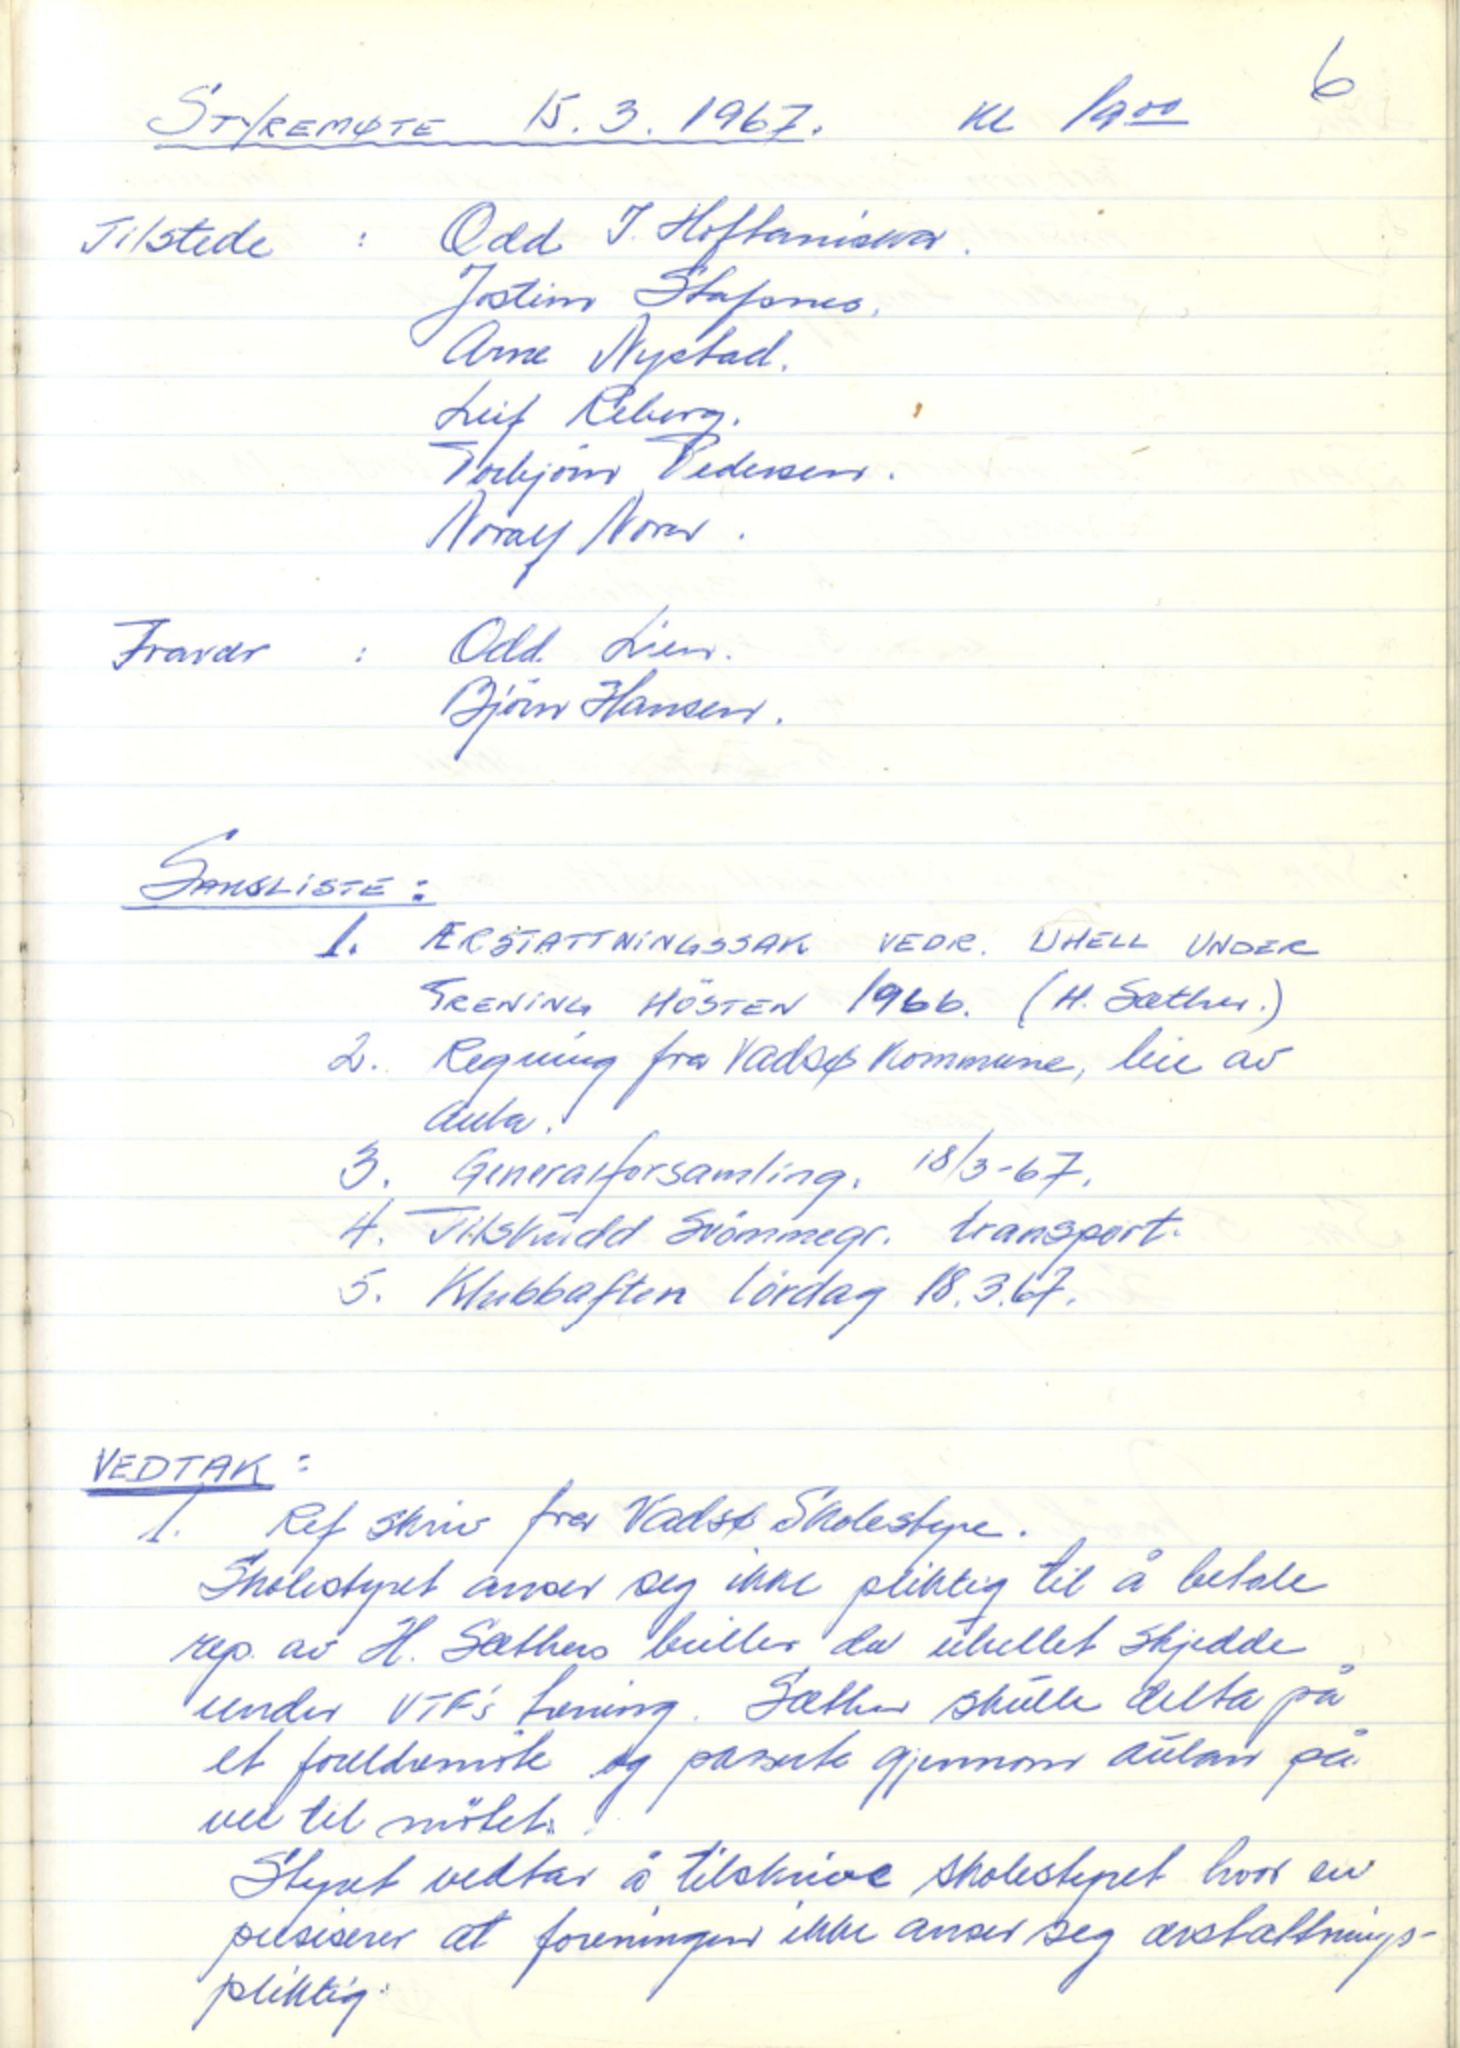 6
STYREMØTE 15.3.1967. Kl 19⁰⁰
Tilstede : Odd J.
Jostein Stafsnes.
Arne Nystad.
Leif Reberg.
Torbjörn Pedersen.
Noralf Noren.
Fravær : Odd. Lien.
Björn Hansen.
SAKSLISTE:
1. ÆRSTATTNINGSSAK VEDR. UHELL UNDER
TRENING HÖSTEN 1966. (H. Sæther.)
2. Regning fra Vadsø Kommune, leie av
Aula.
3. Generalforsamling. 18/3-67.
4. Tilskudd Svömmegr. transport.
5. Klubbaften lördag 18.3.67.
VEDTAK:
1. Ref skriv fra Vadsø Skolestyre.
Skolestyret anser seg ikke pliktig til å betale
rep. av H. Sæthers briller da uhellet skjedde
under VTF's trening. Sæther skulle delta på
et foreldremöte og passerte gjennom aulaen på
vei til mötet.
Styret vedtar å tilskrive skolestyret hvor en
presiserer at foreningen ikke anser seg ærstattnings-
pliktig.